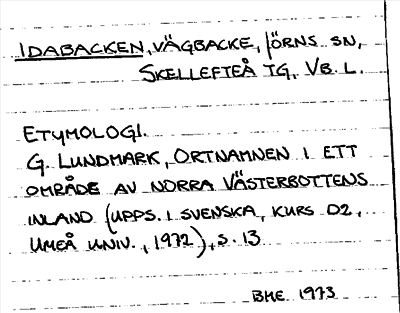 IDABACKEN, VÄGBACKE, JÖRNS SN,
SKELLEFTEÅ TG, VB. L.
ETYMOLOGI.
G. LUNDMARK, ORTNAMNEN I ETT
OMRÅDE AV NORRA VÄSTERBOTTENS
INLAND (UPPS. I SVENSKA, KURS D2,
UMEÅ UNIV., 1972), S. 13
BME 1973